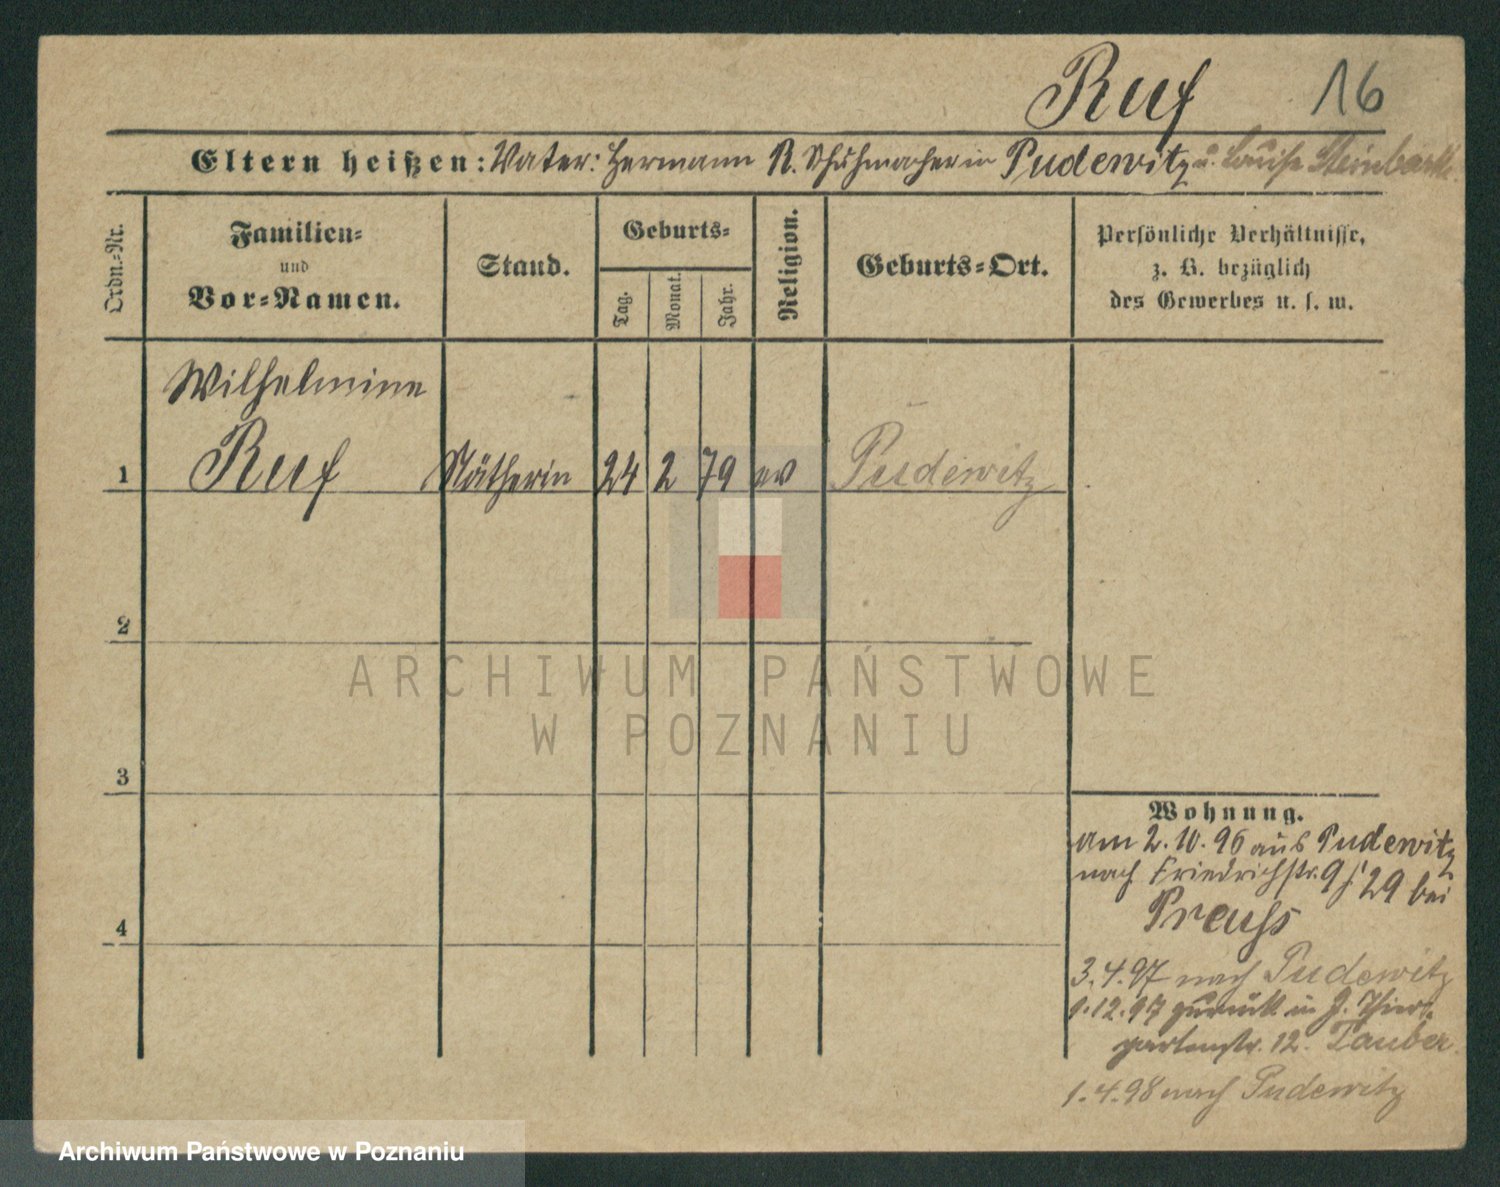 Ruf 16
Eltern heißen: Vater: Hermann R. Schuhmacher in Pudewitz u. Louise
Ordn.-Nr.
Familien-
und
Vor-Namen.
Stand.
Geburts-
Tag.
Monat.
Jahr.
Religion.
Geburts-Ort.
Persönliche Verhältnisse,
z. B. bezüglich
des Gewerbes u. s. w.
Wilhelmine
1 Ruf Nätherin 24 2 79 ev Pudewitz
2
3
4
Wohnung.
am 2.10.96 aus Pudewitz
nach Friedrichstr. 29 bei
Preuss
3.4.97 nach Pudewitz
1.12.97 zurück in J. Thier-
gartenstr. 12. Tauber
1.4.98 nach Pudewitz
ARCHIWUM PAŃSTWOWE
W POZNANIU
Archiwum Państwowe w Poznaniu